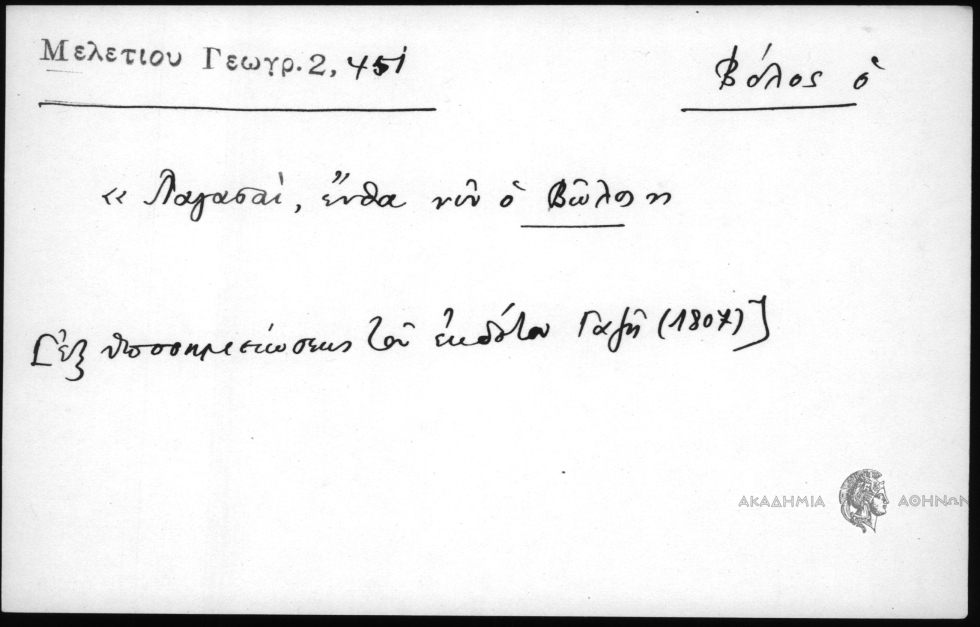 Μελετιου Γεωγρ. 2, 451
Βόλος ὁ
« Παγασαὶ, ἔνθα νῦν ὁ Βῶλος »
[ἐξ ὑποσημειώσεως τοῦ ἐκδότου Γαζῆ (1807)]
ΑΚΑΔΗΜΙΑ ΑΘΗΝΩΝ